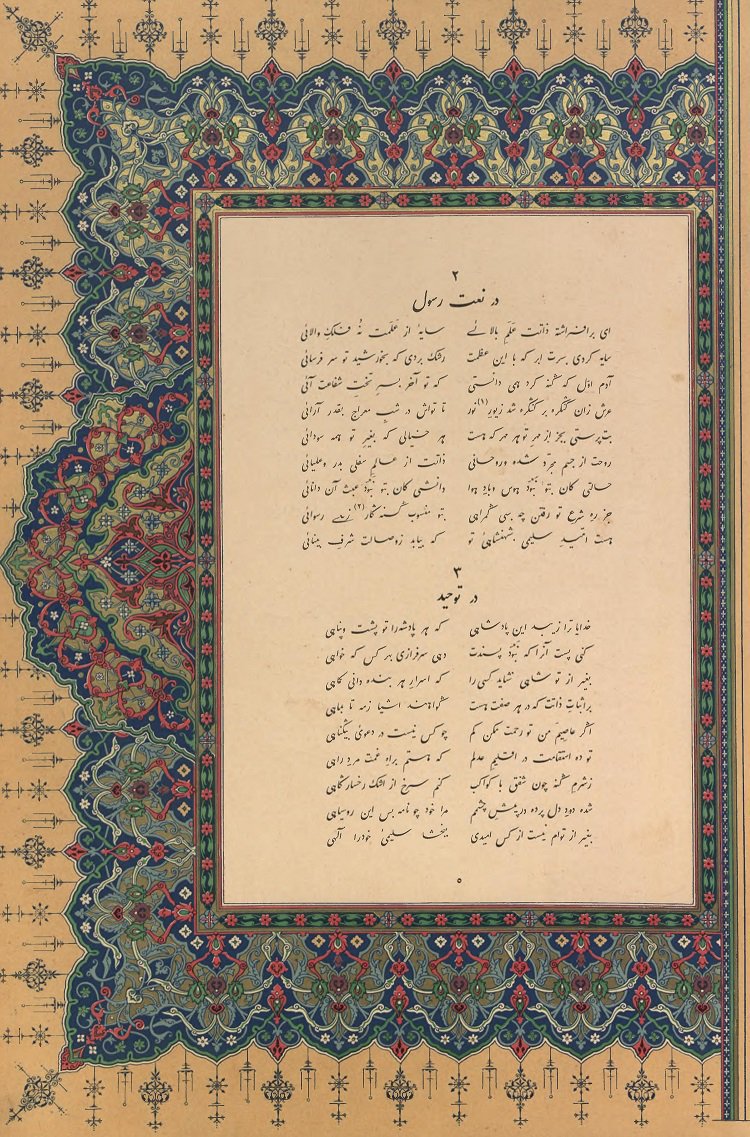 ۲
در نعت رسول
ای برافراشته ذاتت عَلَمِ بالائے سایهٔ از عَلَمت نُه فلکِ والائی
سایه کردی بسرت ابر که با این عظمت رشک بردی که بخورشید تو سر فرسائی
آدم اوّل که گنه کرد همی دانستی که تو آخر بسرِ تختِ شفاعت آئی
عرش زان کنگره بر کنگره شد زیورِ(۱) نور تا تواش در شبِ معراج بقدر آرائی
بت‌پرستی بجز از مهر تو هر مهر که هست هر خیالی که بغیر تو همه سودائی
روحت از جسم مجرّد شده و روحانی ذاتت از عالمِ سفلی بدر و علیائی
حالتی کان بتو نَبْوَدْ هوس و باد هوا دانشی کان بتو نَبْوَدْ عبث آن دانائی
جز رهِ شرع تو رفتن چه بسی گمراهی بتو منسوب گنه‌گار(۲) زهی رسوائی
هست امّیدِ سلیمی بشهنشاهیٔ تو که بیابد ز وصالت شرفِ بینائی
۳
در توحید
خدایا ترا زیبد این پادشاهی که هر پادشه را تو پشت و پناهی
کنی پست آنرا که نَبْوَدْ پسندت دهی سرفرازی بر کس که خواهی
بغیر از تو شاهی نشاید کسی را که اسرارِ هر بنده دانی کماهی
براثباتِ ذاتت که در هر صفت هست گواهند اشیا ز مه تا بماهی
اگر عاصیَم من تو رحمت مکن کم چو کس نیست در دعویٔ بیگناهی
تو ده استقامت در اقلیمِ عدلم که هستم براهِ غمت مردِ راهی
ز شرمِ گنه چون شفق با کواکب کنم سرخ از اشک رخسار گاهی
شده دودِ دل پرده در پیشِ چشمم مرا خود چو نامه بس این روسیاهی
بغیر از توام نیست از کس امیدی ببخشا سلیمیٔ خود را آلهی
۵